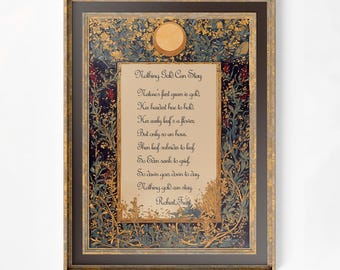 Nothing Gold Can Stay
Nature's first green is gold,
Her hardest hue to hold.
Her early leaf's a flower;
But only so an hour.
Then leaf subsides to leaf.
So Eden sank to grief,
So dawn goes down to day.
Nothing gold can stay.
Robert Frost